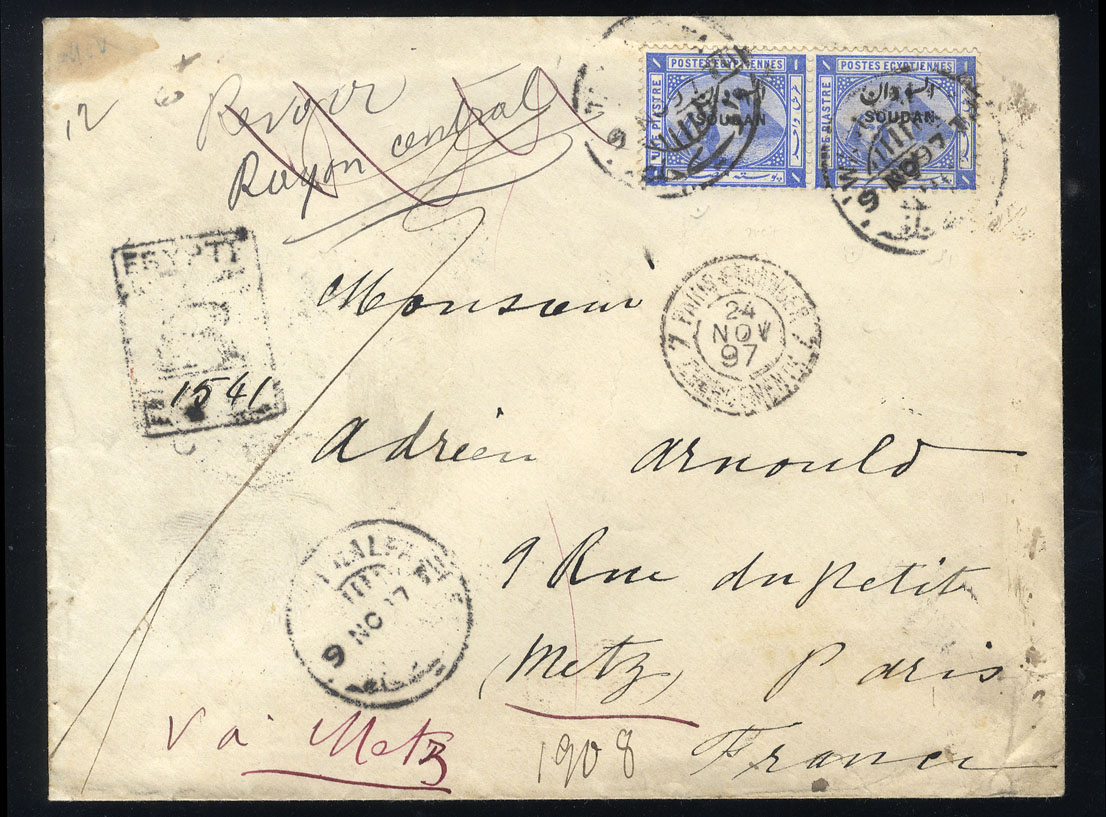 12
Rayon central
POSTES EGYPTIENNES
السودان
SOUDAN
UNE PIASTRE
POSTES EGYPTIENNES
السودان
SOUDAN
UNE PIASTRE
9 NO 97
EGYPT
R
1541
Monsieur
24
NOV
97
Adrien Arnould
9 Rue du Petit
(Metz) Paris
9 NO 97
Via Metz
1908
France